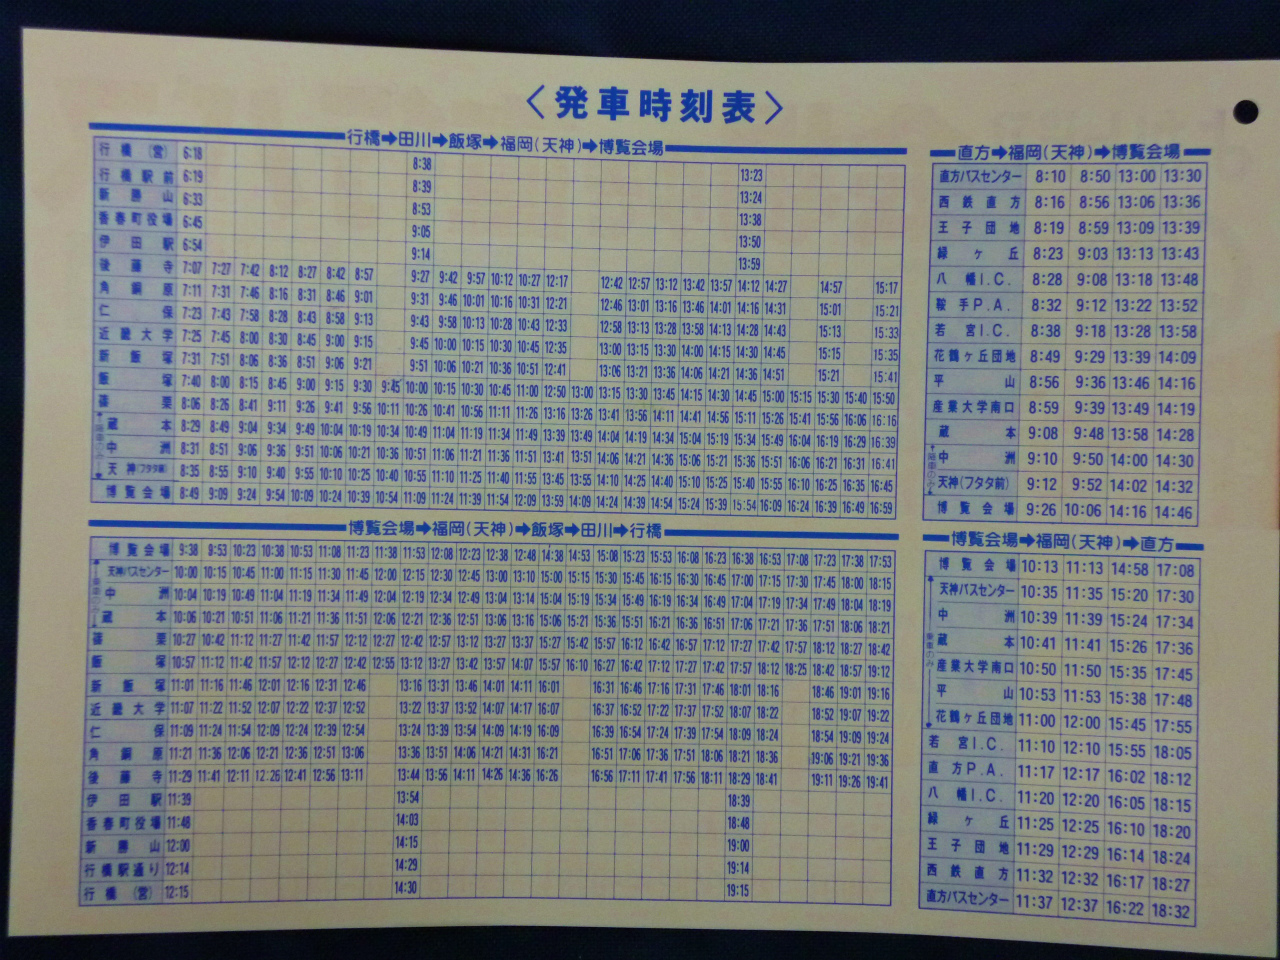 〈発車時刻表〉
行橋➡田川➡飯塚➡福岡(天神)➡博覧会場
行橋(営) 6:18 8:38 13:23
行橋駅前 6:19 8:39 13:24
新勝山 6:33 8:53 13:38
香春町役場 6:45 9:05 13:50
伊田駅 6:54 9:14 13:59
後藤寺 7:07 7:27 7:42 8:12 8:27 8:42 8:57 9:27 9:42 9:57 10:12 10:27 12:17 12:42 12:57 13:12 13:42 13:57 14:12 14:27 14:57 15:17
角銅原 7:11 7:31 7:46 8:16 8:31 8:46 9:01 9:31 9:46 10:01 10:16 10:31 12:21 12:46 13:01 13:16 13:46 14:01 14:16 14:31 15:01 15:21
仁保 7:23 7:43 7:58 8:28 8:43 8:58 9:13 9:43 9:58 10:13 10:28 10:43 12:33 12:58 13:13 13:28 13:58 14:13 14:28 14:43 15:13 15:33
近畿大学 7:25 7:45 8:00 8:30 8:45 9:00 9:15 9:45 10:00 10:15 10:30 10:45 12:35 13:00 13:15 13:30 14:00 14:15 14:30 14:45 15:15 15:35
新飯塚 7:31 7:51 8:06 8:36 8:51 9:06 9:21 9:51 10:06 10:21 10:36 10:51 12:41 13:06 13:21 13:36 14:06 14:21 14:36 14:51 15:21 15:41
飯塚 7:40 8:00 8:15 8:45 9:00 9:15 9:30 9:45 10:00 10:15 10:30 10:45 11:00 12:50 13:00 13:15 13:30 13:45 14:15 14:30 14:45 15:00 15:15 15:30 15:40 15:50
篠栗 8:06 8:26 8:41 9:11 9:26 9:41 9:56 10:11 10:26 10:41 10:56 11:11 11:26 13:16 13:26 13:41 13:56 14:11 14:41 14:56 15:11 15:26 15:41 15:56 16:06 16:16
蔵本 8:29 8:49 9:04 9:34 9:49 10:04 10:19 10:34 10:49 11:04 11:19 11:34 11:49 13:39 13:49 14:04 14:19 14:34 15:04 15:19 15:34 15:49 16:04 16:19 16:29 16:39
中洲 8:31 8:51 9:06 9:36 9:51 10:06 10:21 10:36 10:51 11:06 11:21 11:36 11:51 13:41 13:51 14:06 14:21 14:36 15:06 15:21 15:36 15:51 16:06 16:21 16:31 16:41
天神(フタタ前) 8:35 8:55 9:10 9:40 9:55 10:10 10:25 10:40 10:55 11:10 11:25 11:40 11:55 13:45 13:55 14:10 14:25 14:40 15:10 15:25 15:40 15:55 16:10 16:25 16:35 16:45
博覧会場 8:49 9:09 9:24 9:54 10:09 10:24 10:39 10:54 11:09 11:24 11:39 11:54 12:09 13:59 14:09 14:24 14:39 14:54 15:24 15:39 15:54 16:09 16:24 16:39 16:49 16:59
降車のみ
博覧会場➡福岡(天神)➡飯塚➡田川➡行橋
博覧会場 9:38 9:53 10:23 10:38 10:53 11:08 11:23 11:38 11:53 12:08 12:23 12:38 12:48 14:38 14:53 15:08 15:23 15:53 16:08 16:23 16:38 16:53 17:08 17:23 17:38 17:53
天神バスセンター 10:00 10:15 10:45 11:00 11:15 11:30 11:45 12:00 12:15 12:30 12:45 13:00 13:10 15:00 15:15 15:30 15:45 16:15 16:30 16:45 17:00 17:15 17:30 17:45 18:00 18:15
中洲 10:04 10:19 10:49 11:04 11:19 11:34 11:49 12:04 12:19 12:34 12:49 13:04 13:14 15:04 15:19 15:34 15:49 16:19 16:34 16:49 17:04 17:19 17:34 17:49 18:04 18:19
蔵本 10:06 10:21 10:51 11:06 11:21 11:36 11:51 12:06 12:21 12:36 12:51 13:06 13:16 15:06 15:21 15:36 15:51 16:21 16:36 16:51 17:06 17:21 17:36 17:51 18:06 18:21
篠栗 10:27 10:42 11:12 11:27 11:42 11:57 12:12 12:27 12:42 12:57 13:12 13:27 13:37 15:27 15:42 15:57 16:12 16:42 16:57 17:12 17:27 17:42 17:57 18:12 18:27 18:42
飯塚 10:57 11:12 11:42 11:57 12:12 12:27 12:42 12:55 13:12 13:27 13:42 13:57 14:07 15:57 16:10 16:27 16:42 17:12 17:27 17:42 17:57 18:12 18:25 18:42 18:57 19:12
新飯塚 11:01 11:16 11:46 12:01 12:16 12:31 12:46 13:16 13:31 13:46 14:01 14:11 16:01 16:31 16:46 17:16 17:31 17:46 18:01 18:16 18:46 19:01 19:16
近畿大学 11:07 11:22 11:52 12:07 12:22 12:37 12:52 13:22 13:37 13:52 14:07 14:17 16:07 16:37 16:52 17:22 17:37 17:52 18:07 18:22 18:52 19:07 19:22
仁保 11:09 11:24 11:54 12:09 12:24 12:39 12:54 13:24 13:39 13:54 14:09 14:19 16:09 16:39 16:54 17:24 17:39 17:54 18:09 18:24 18:54 19:09 19:24
角銅原 11:21 11:36 12:06 12:21 12:36 12:51 13:06 13:36 13:51 14:06 14:21 14:31 16:21 16:51 17:06 17:36 17:51 18:06 18:21 18:36 19:06 19:21 19:36
後藤寺 11:29 11:41 12:11 12:26 12:41 12:56 13:11 13:44 13:56 14:11 14:26 14:36 16:26 16:56 17:11 17:41 17:56 18:11 18:29 18:41 19:11 19:26 19:41
伊田駅 11:39 13:54 18:39
香春町役場 11:48 14:03 18:48
新勝山 12:00 14:15 19:00
行橋駅通り 12:14 14:29 19:14
行橋(営) 12:15 14:30 19:15
乗車のみ
直方➡福岡(天神)➡博覧会場
直方バスセンター 8:10 8:50 13:00 13:30
西鉄直方 8:16 8:56 13:06 13:36
王子団地 8:19 8:59 13:09 13:39
緑ヶ丘 8:23 9:03 13:13 13:43
八幡I.C. 8:28 9:08 13:18 13:48
鞍手P.A. 8:32 9:12 13:22 13:52
若宮I.C. 8:38 9:18 13:28 13:58
花鶴ヶ丘団地 8:49 9:29 13:39 14:09
平山 8:56 9:36 13:46 14:16
産業大学南口 8:59 9:39 13:49 14:19
蔵本 9:08 9:48 13:58 14:28
中洲 9:10 9:50 14:00 14:30
天神(フタタ前) 9:12 9:52 14:02 14:32
博覧会場 9:26 10:06 14:16 14:46
降車のみ
博覧会場➡福岡(天神)➡直方
博覧会場 10:13 11:13 14:58 17:08
天神バスセンター 10:35 11:35 15:20 17:30
中洲 10:39 11:39 15:24 17:34
蔵本 10:41 11:41 15:26 17:36
産業大学南口 10:50 11:50 15:35 17:45
平山 10:53 11:53 15:38 17:48
花鶴ヶ丘団地 11:00 12:00 15:45 17:55
若宮I.C. 11:10 12:10 15:55 18:05
直方P.A. 11:17 12:17 16:02 18:12
八幡I.C. 11:20 12:20 16:05 18:15
緑ヶ丘 11:25 12:25 16:10 18:20
王子団地 11:29 12:29 16:14 18:24
西鉄直方 11:32 12:32 16:17 18:27
直方バスセンター 11:37 12:37 16:22 18:32
乗車のみ